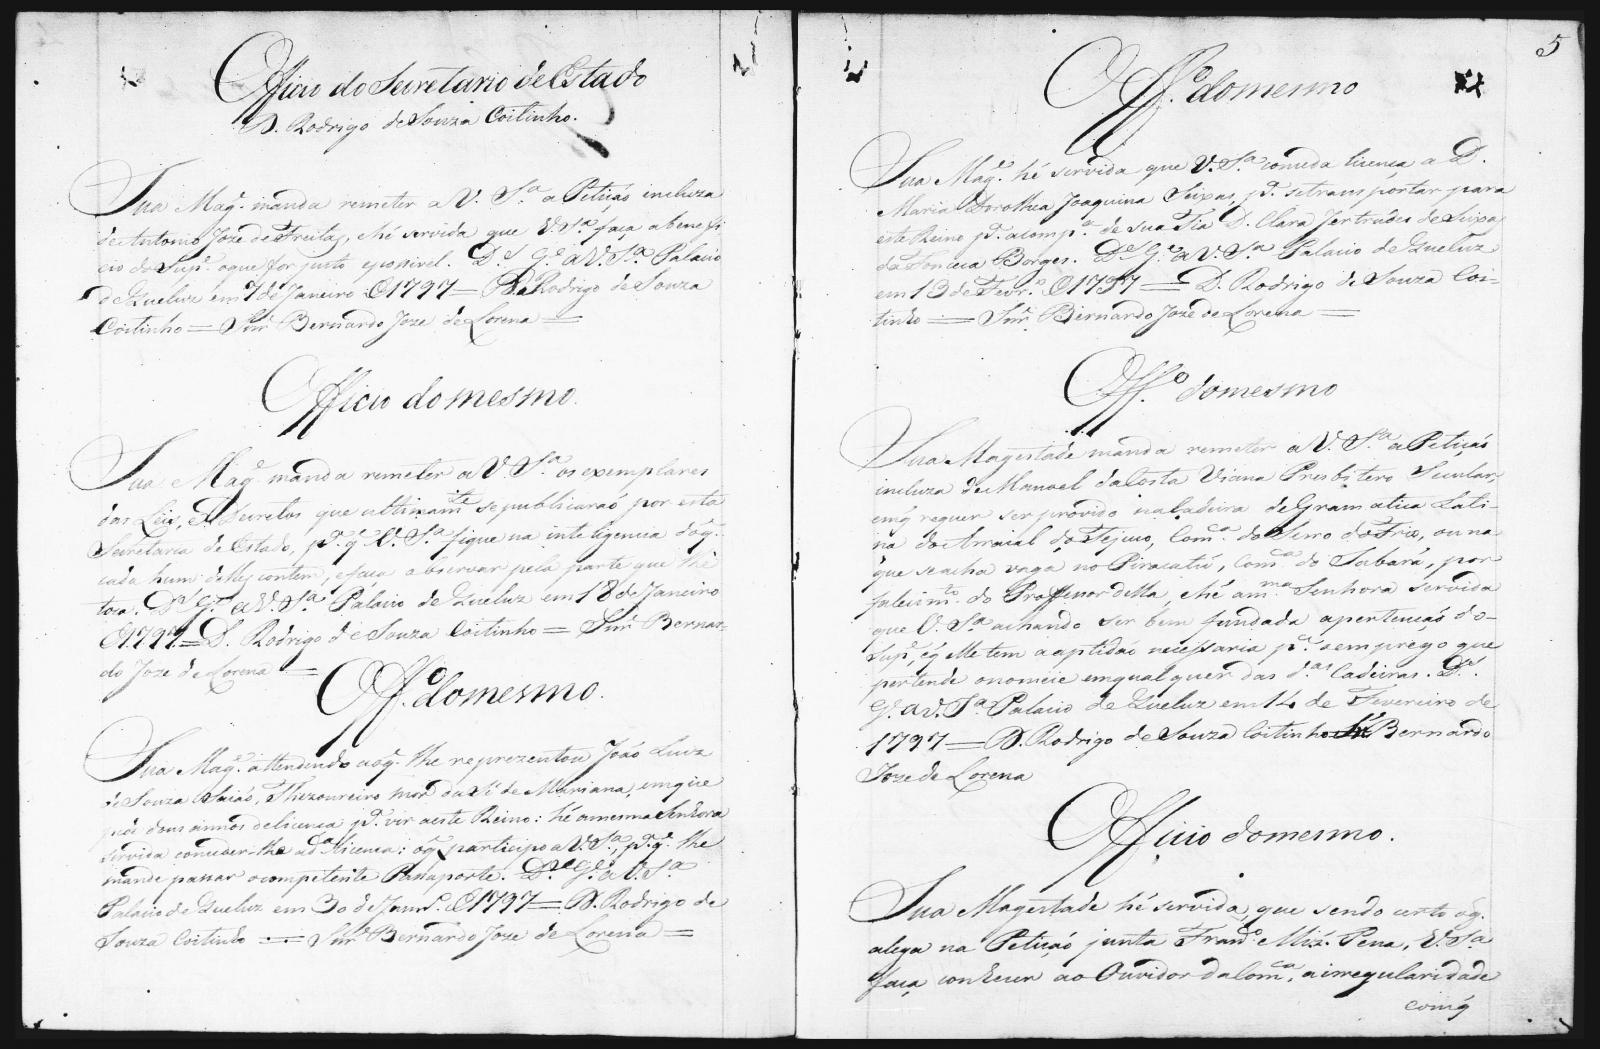 Officio do Secretario de Estado
D. Rodrigo de Souza Coitinho.
Sua Mag.e manda remeter a V. S.a a Petiçaõ incluza
de Antonio Joze de Freitas, e hé servida que V. S.a faça a benefi
cio do Sup.e o que for justo e possivel. D.s G.e a V. S.a Palacio
de Queluz em 7 de Janeiro de 1797 = D. Rodrigo de Souza
Coitinho = Snr. Bernardo Joze de Lorena =
Officio do mesmo.
Sua Mag.e manda remeter a V. S.a os exemplares
das Leis, e Decretos que ultimam.te se publicaraõ por esta
Secretaria de Estado, p.a q̃ V. S.a fique na inteligencia do q.
cada hum delles contém, e faça observar pela parte que lhe
toca. D.s G.e a V. S.a Palacio de Queluz em 18 de Janeiro
de 1797 = D. Rodrigo de Souza Coitinho = Snr. Bernar-
do Joze de Lorena =
Off.o do mesmo.
Sua Mag.e attendendo ao q. lhe reprezentou Joaõ Luiz
de Souza Saiaõ, Thezoureiro mor da Sé de Mariana, em que
pede dous annos de licença p.a vir a este Reino: hé a mesma Senhora
servida conceder-lhe a d.a licença: o q̃ participo a V. S.a p.a q. lhe
mande passar o competente Passaporte. D.s G.e a V. S.a
Palacio de Queluz em 30 de Janr.o de 1797 = D. Rodrigo de
Souza Coitinho = Snr. Bernardo Joze de Lorena =
5
Off.o do mesmo
Sua Mag.e hé servida que V. S.a conceda licença a D.
Maria Dorothea Joaquina Seixas, p.a se transportar para
este Reino p.a acomp.a de sua Tia D. Clara Jertrudes de Seixas
da Fonceca Borges. D.s G.e a V. S.a Palacio de Queluz
em 13 de Fevr.o de 1797 = D. Rodrigo de Souza Coi-
tinho = Snr. Bernardo Joze de Lorena =
Off.o do mesmo
Sua Magestade manda remeter a V. S.a a Petiçaõ
incluza de Manoel da Costa Viana Presbitero Secular,
em q̃ requer ser provido na Cadeira de Gramatica Lati-
na do Arraial do Tejuco, Com.ca do Serro do Frio, ou na
que se acha vaga no Piracatú, Com.ca do Sabará, por
falecim.to do Professor della, e hé a m.ma Senhora servida
que V. S.a achando ser bem fundada a pertençaõ do
Sup.e, e q̃ elle tem a aptidaõ necessaria p.a o emprego que
pertende o nomeie em qualquer das d.as Cadeiras. D.s
G.e a V. S.a Palacio de Queluz em 14 de Fevereiro de
1797 = D. Rodrigo de Souza Coitinho Sr. Bernardo
Joze de Lorena
Officio do mesmo.
Sua Magestade hé servida, que sendo certo o q̃.
alega na Petiçaõ junta Fran.co Miz. Pena, V. S.a
faça conhecer ao Ouvidor da Com.ca a irregularidade
com q̃